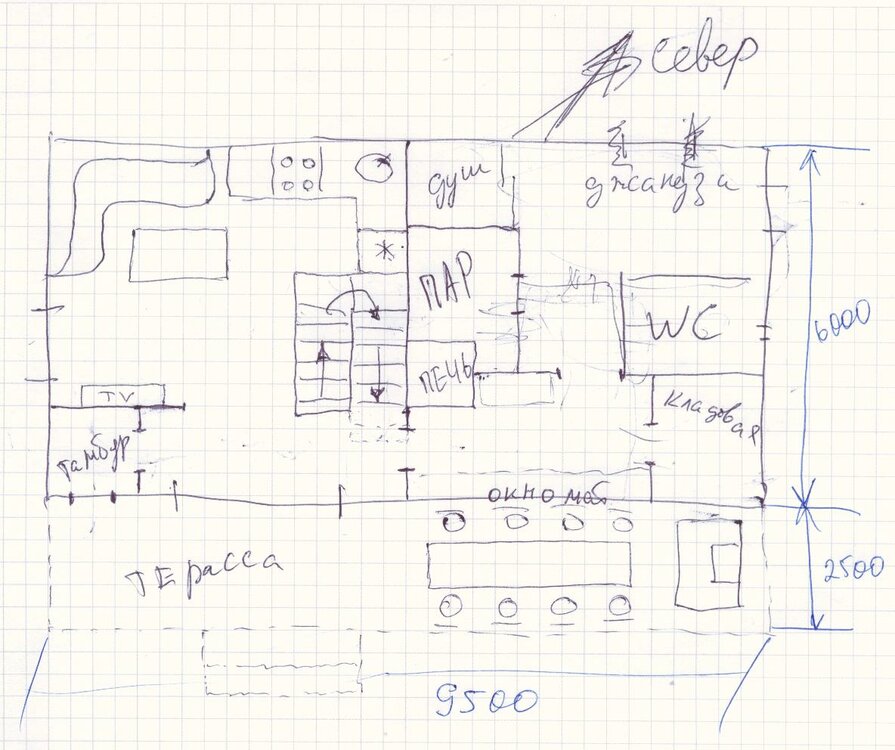 север
душ
джандза
ПАР
WC
ПЕЧЬ
TV
кладовая
тамбур
окно моб
Терасса
6000
2500
9500